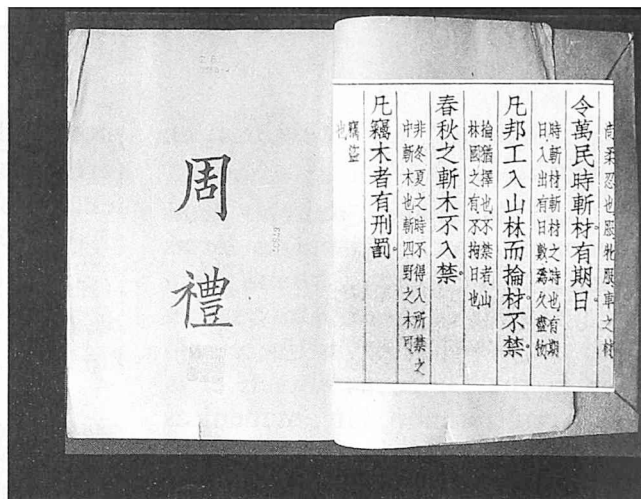 尚柔忍也服牝服車之材
令萬民時斬材。有期日。
時斬材斬材之時也有期
日入出有日數爲久盡物
凡邦工入山林而掄材。不禁。
掄猶擇也不禁者山
林國之有不拘日也
春秋之斬木不入禁。
非冬夏之時不得入所禁之
中斬木也斬四野之木可
凡竊木者有刑罰。
竊盜
也
周禮